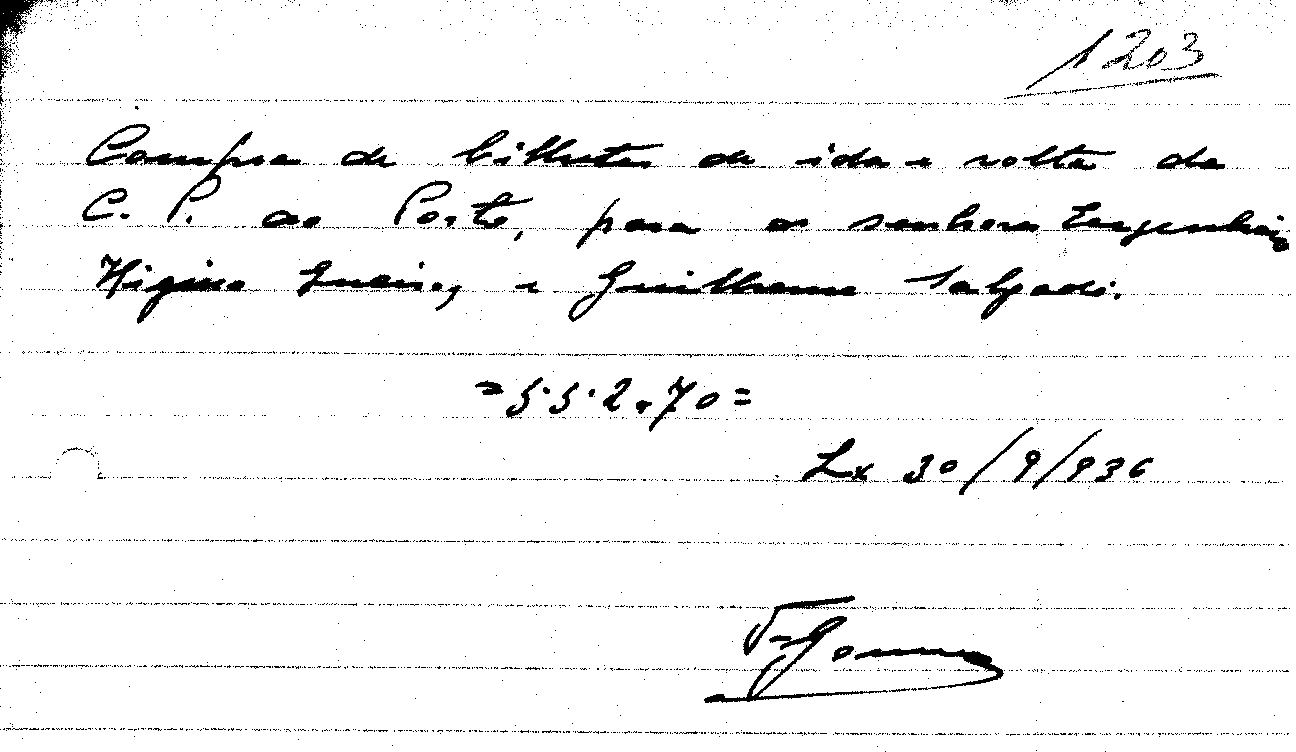 1203
Compra de bilhetes de ida e volta da
C. P. ao Porto, para os senhores Engenheiros
Higino Queiroz e Guilherme Salgado.
=5.5.2.70=
Lx 30/9/936
F. Gomes